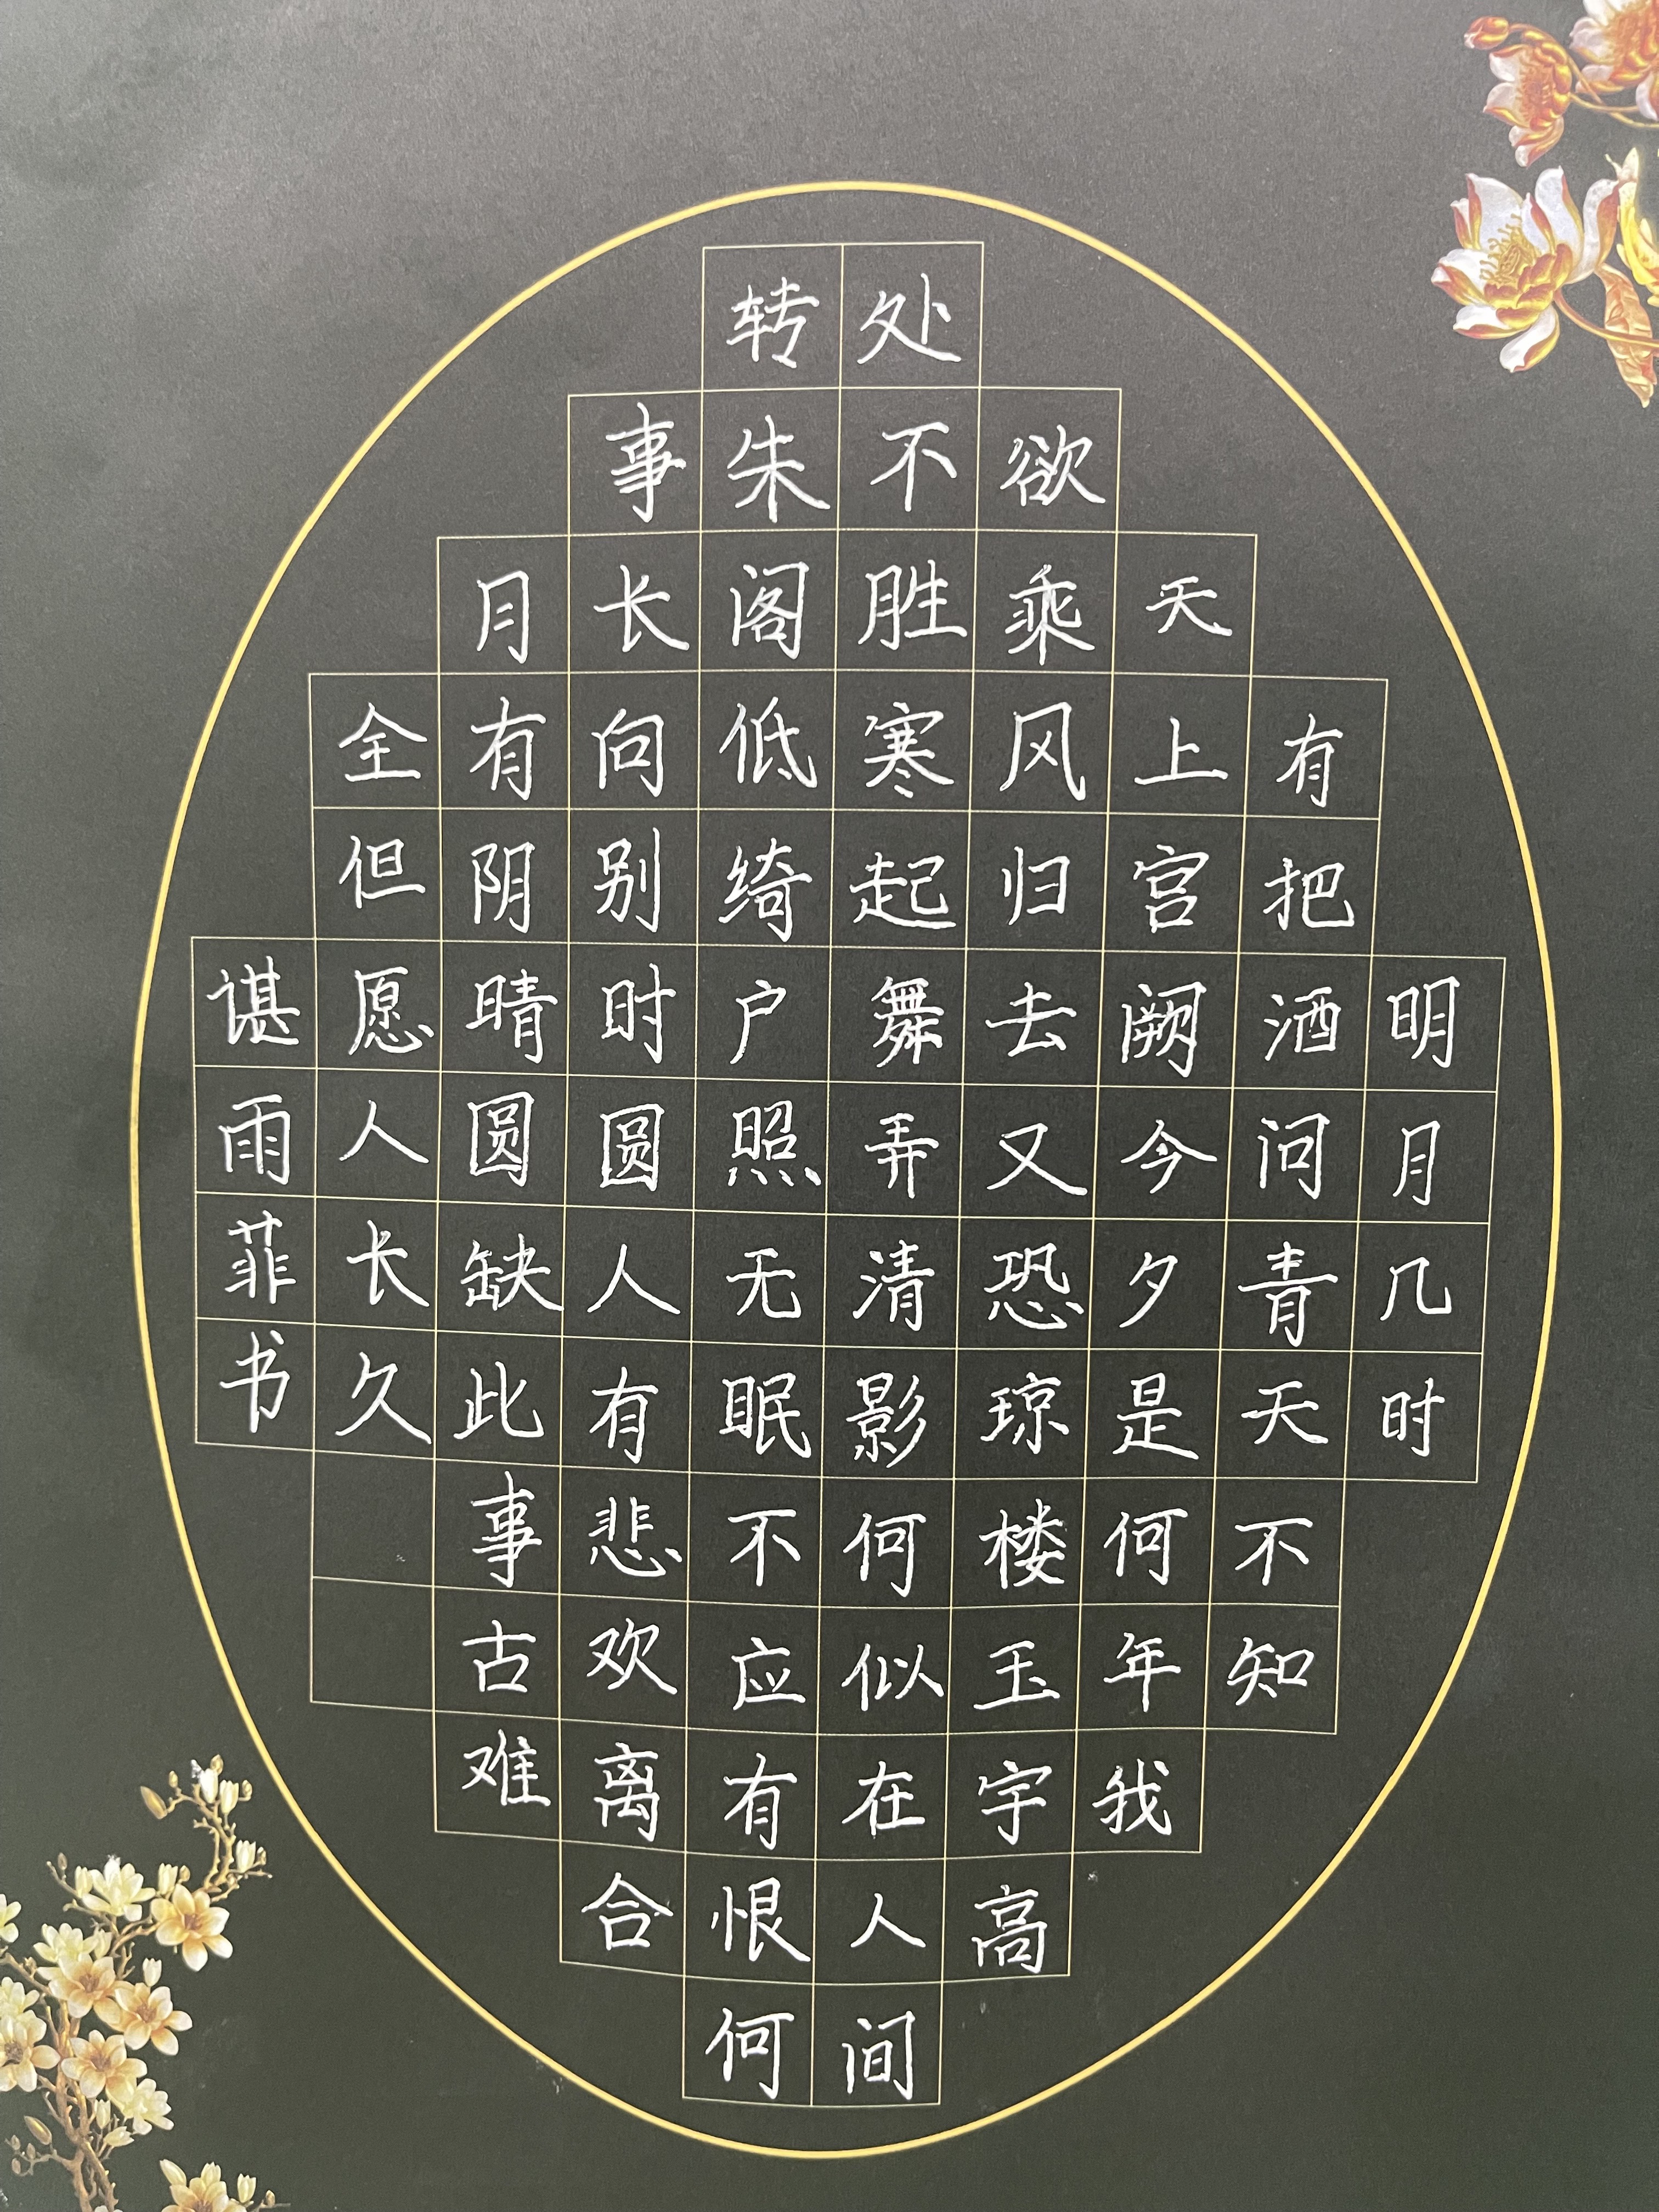 明月几时
有把酒问青天不知
天上宫阙今夕是何年我
欲乘风归去又恐琼楼玉宇高
处不胜寒起舞弄清影何似在人间
转朱阁低绮户照无眠不应有恨何
事长向别时圆人有悲欢离合
月有阴晴圆缺此事古难
全但愿人长久
谌雨菲书